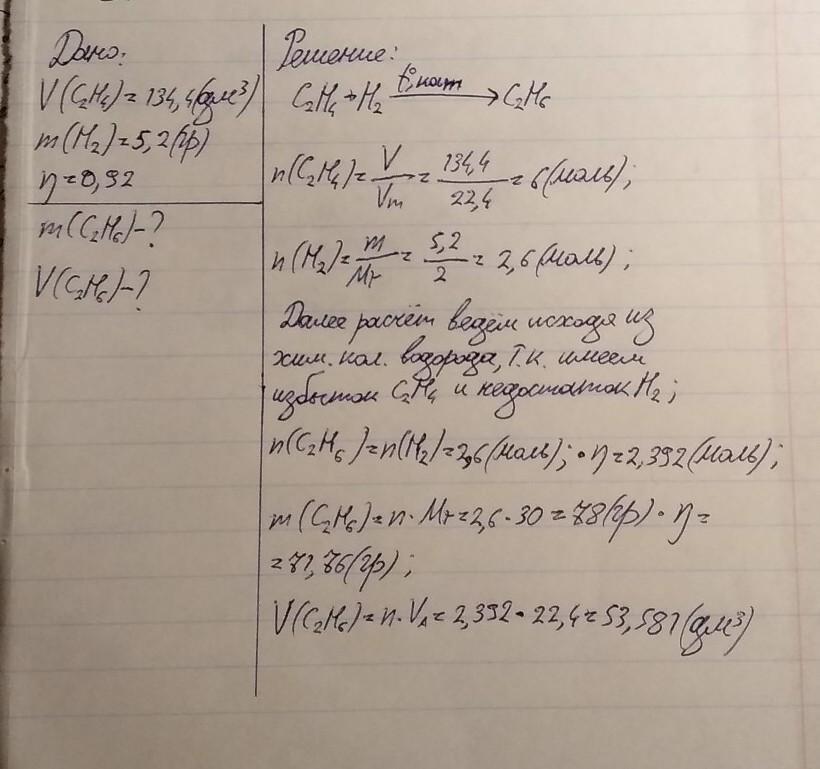 Дано:
V(C₂H₄)=134,4(дм³)
m(H₂)=5,2(гр)
η=0,92
m(C₂H₆)-?
V(C₂H₆)-?
Решение:
C₂H₄+H₂ —t°,кат→ C₂H₆
n(C₂H₄)=V/Vm=134,4/22,4=6(моль);
n(H₂)=m/Mr=5,2/2=2,6(моль);
Далее расчёт ведём исходя из
хим. кол. водорода, т.к. имеем
избыток C₂H₄ и недостаток H₂;
n(C₂H₆)=n(H₂)=2,6(моль);·η=2,392(моль);
m(C₂H₆)=n·Mr=2,6·30=78(гр)·η=
=71,76(гр);
V(C₂H₆)=n·V_A=2,392·22,4=53,581(дм³)